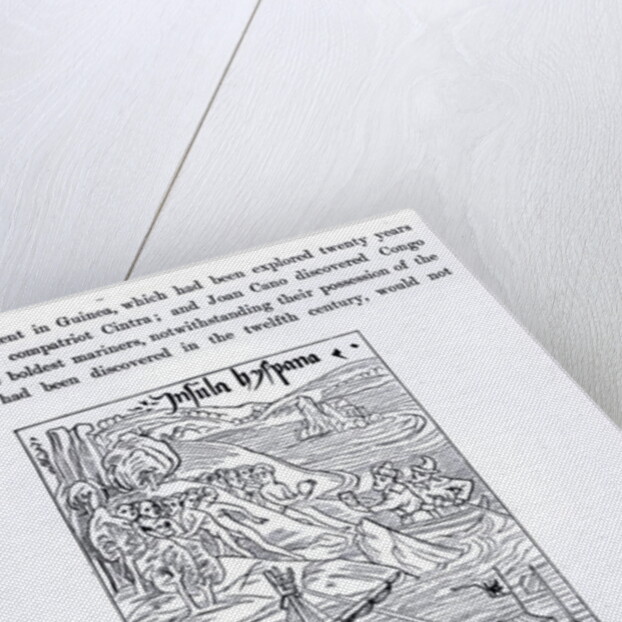 ent in Guinea, which had been explored twenty years
compatriot Cintra; and Joan Cano discovered Congo
boldest mariners, notwithstanding their possession of the
had been discovered in the twelfth century, would not
Insula hyspana